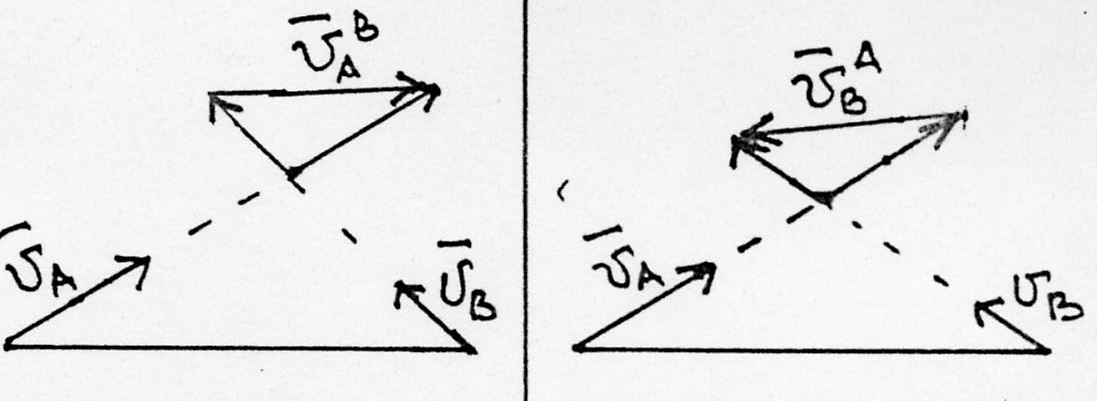 v̄_A^B
v̄_A
v̄_B
v̄_B^A
v̄_A
v_B